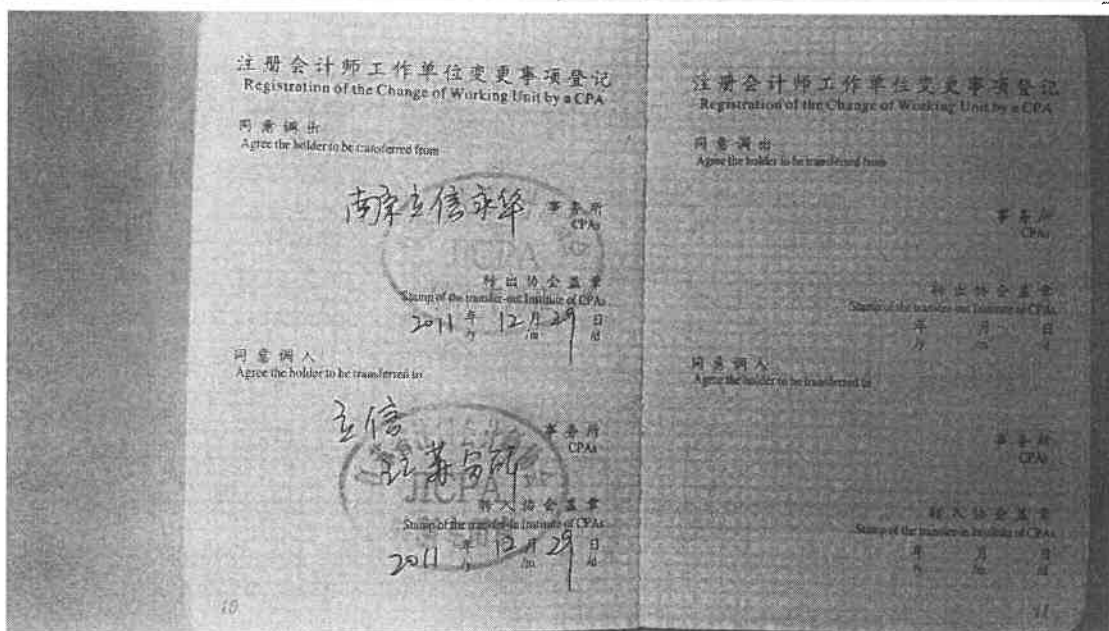 注册会计师工作单位变更事项登记
Registration of the Change of Working Unit by a CPA
同意调出
Agree the holder to be transferred from
南京立信永华 事务所
CPAs
JICPA
转出协会盖章
Stamp of the transfer-out Institute of CPAs
2011 年 12 月 29 日
/y /m /d
同意调入
Agree the holder to be transferred to
立信 事务所
江苏分所 CPAs
JICPA
转入协会盖章
Stamp of the transfer-in Institute of CPAs
2011 年 12 月 29 日
/y /m /d
10
注册会计师工作单位变更事项登记
Registration of the Change of Working Unit by a CPA
同意调出
Agree the holder to be transferred from
事务所
CPAs
转出协会盖章
Stamp of the transfer-out Institute of CPAs
年 月 日
/y /m /d
同意调入
Agree the holder to be transferred to
事务所
CPAs
转入协会盖章
Stamp of the transfer-in Institute of CPAs
年 月 日
/y /m /d
11